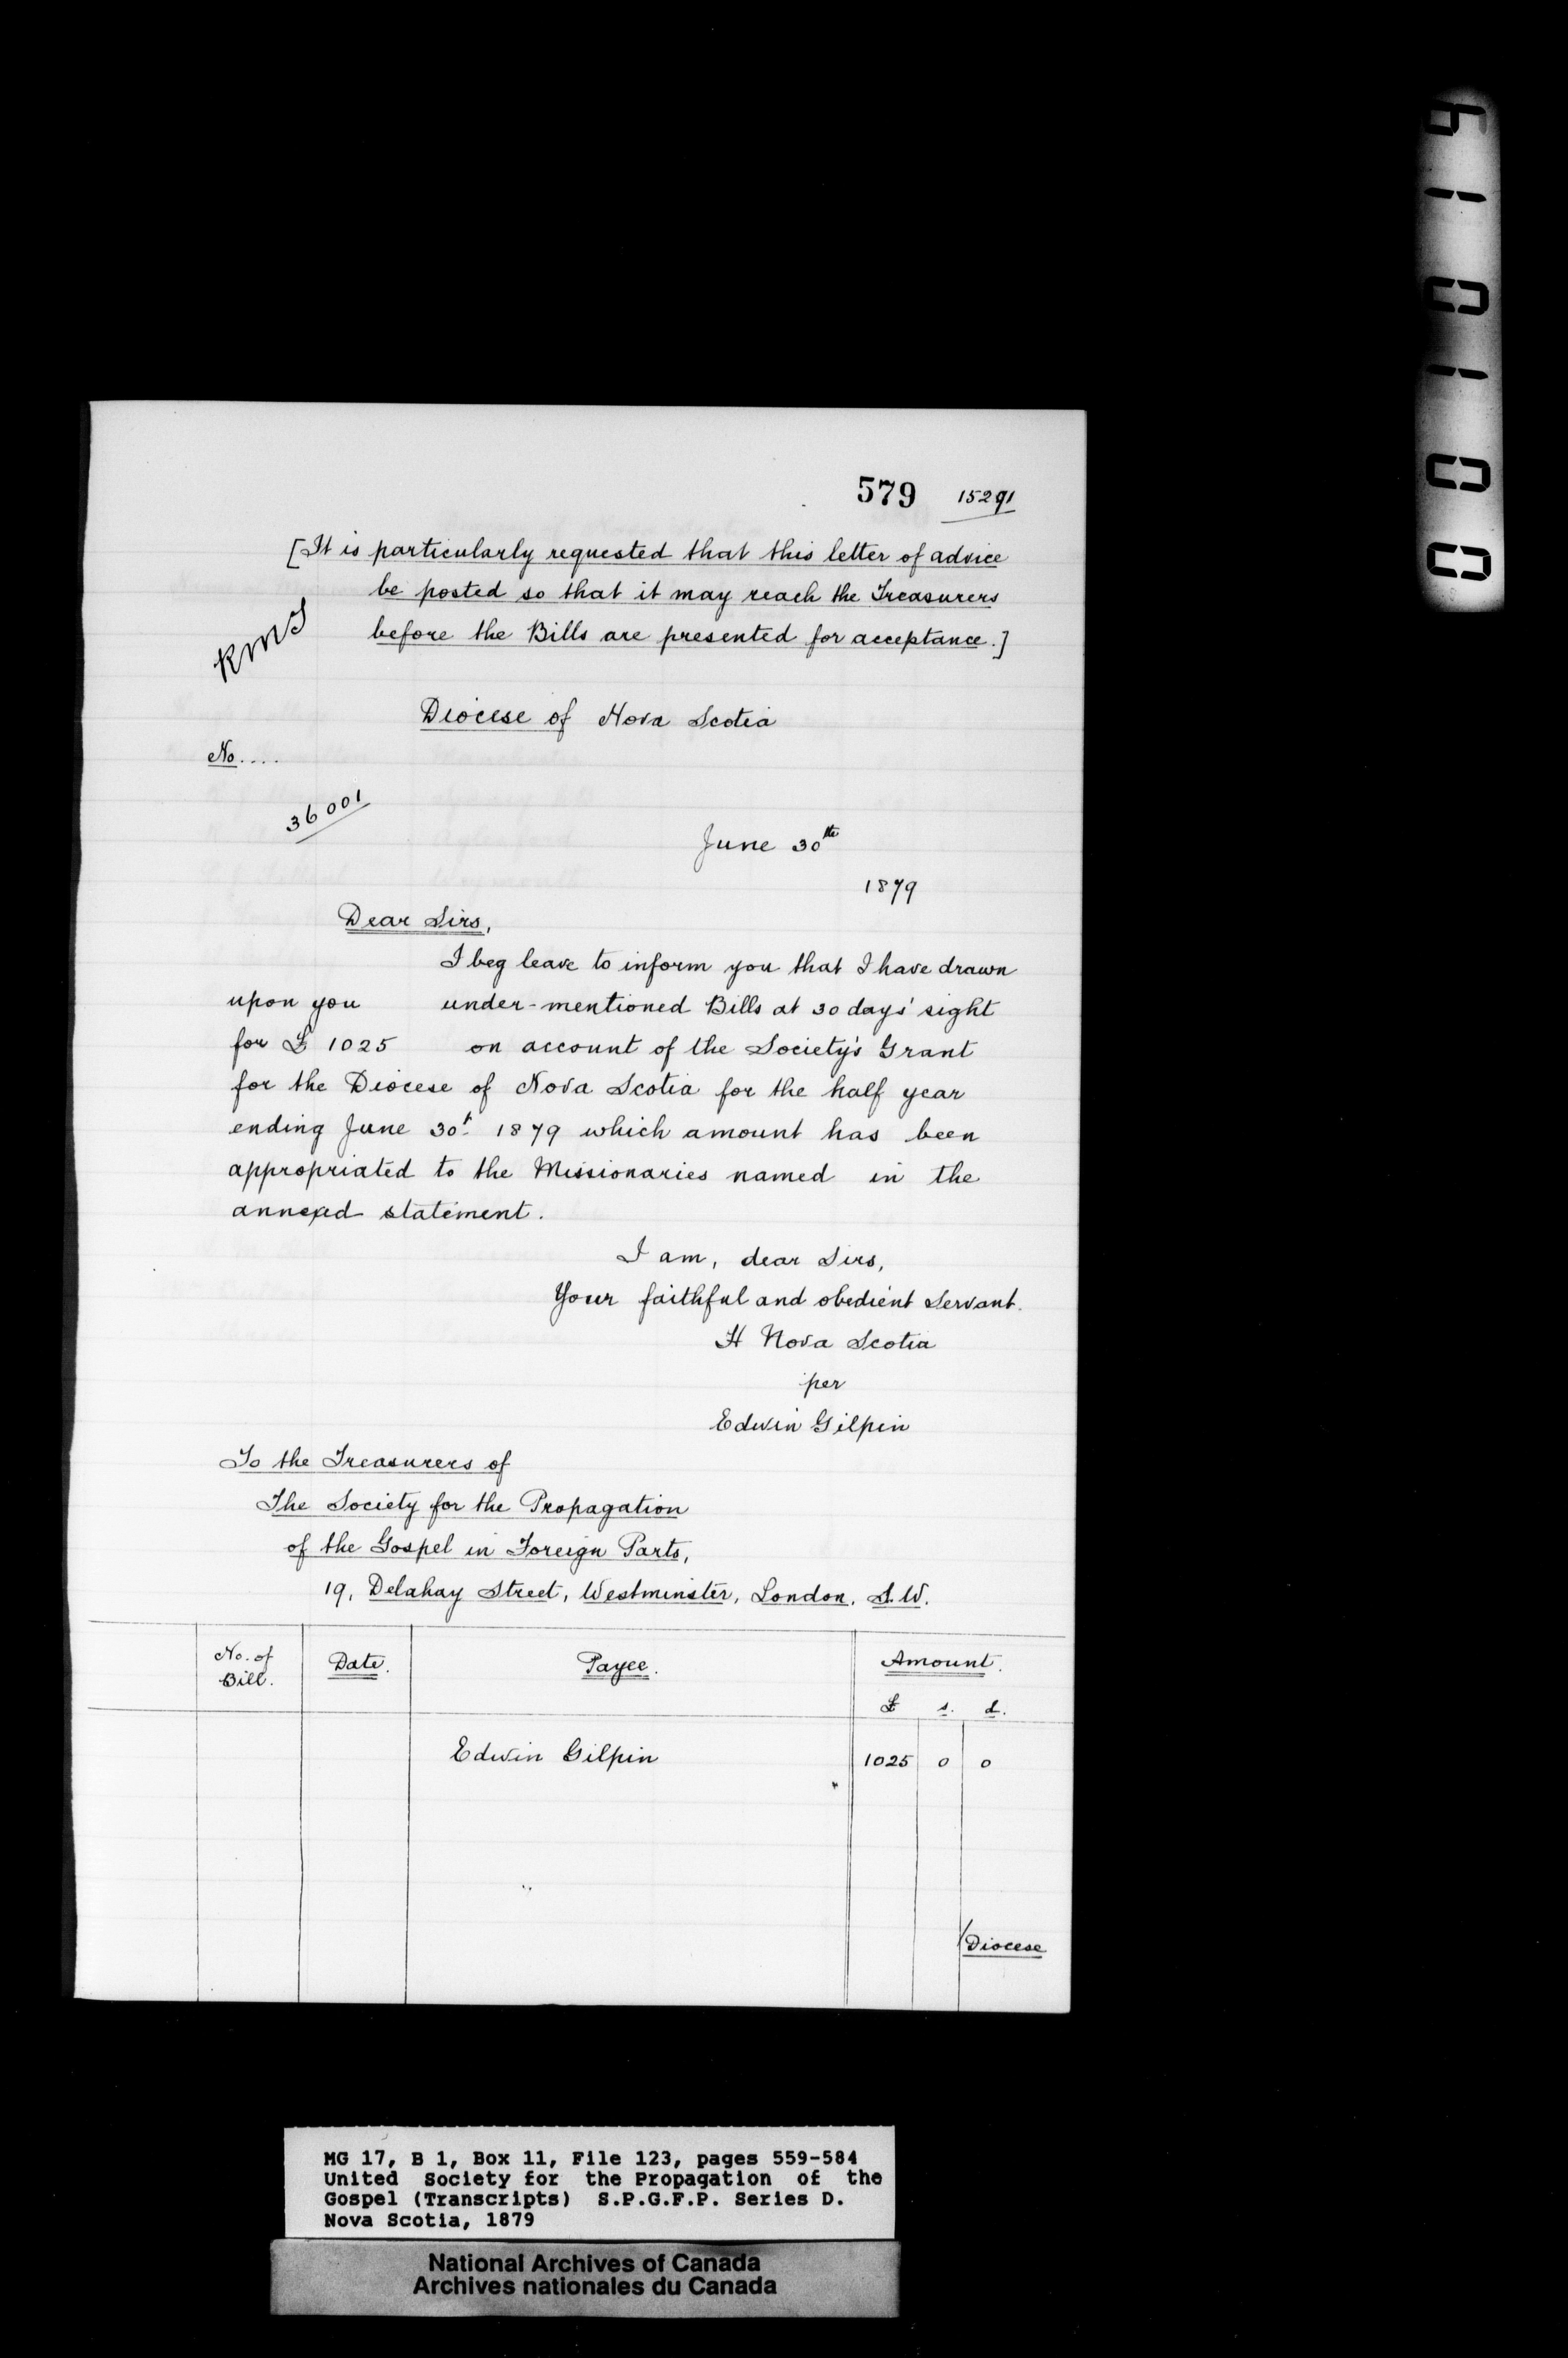 579 15291
[It is particularly requested that this letter of advice
be posted so that it may reach the Treasurers
before the Bills are presented for acceptance.]
Diocese of Nova Scotia
No....
36001
June 30th
1879
Dear Sirs,
I beg leave to inform you that I have drawn
upon you under-mentioned Bills at 30 days' sight
for £ 1025 on account of the Society's Grant
for the Diocese of Nova Scotia for the half year
ending June 30t. 1879 which amount has been
appropriated to the Missionaries named in the
annexed statement.
I am, dear Sirs,
Your faithful and obedient Servant.
H Nova Scotia
per
Edwin Gilpin
To the Treasurers of
The Society for the Propagation
of the Gospel in Foreign Parts,
19, Delahay Street, Westminster, London, S.W.
No. of Bill. Date. Payee. Amount.
£ s. d.
Edwin Gilpin 1025 0 0
/Diocese
MG 17, B 1, Box 11, File 123, pages 559-584
United Society for the Propagation of the
Gospel (Transcripts) S.P.G.F.P. Series D.
Nova Scotia, 1879
National Archives of Canada
Archives nationales du Canada